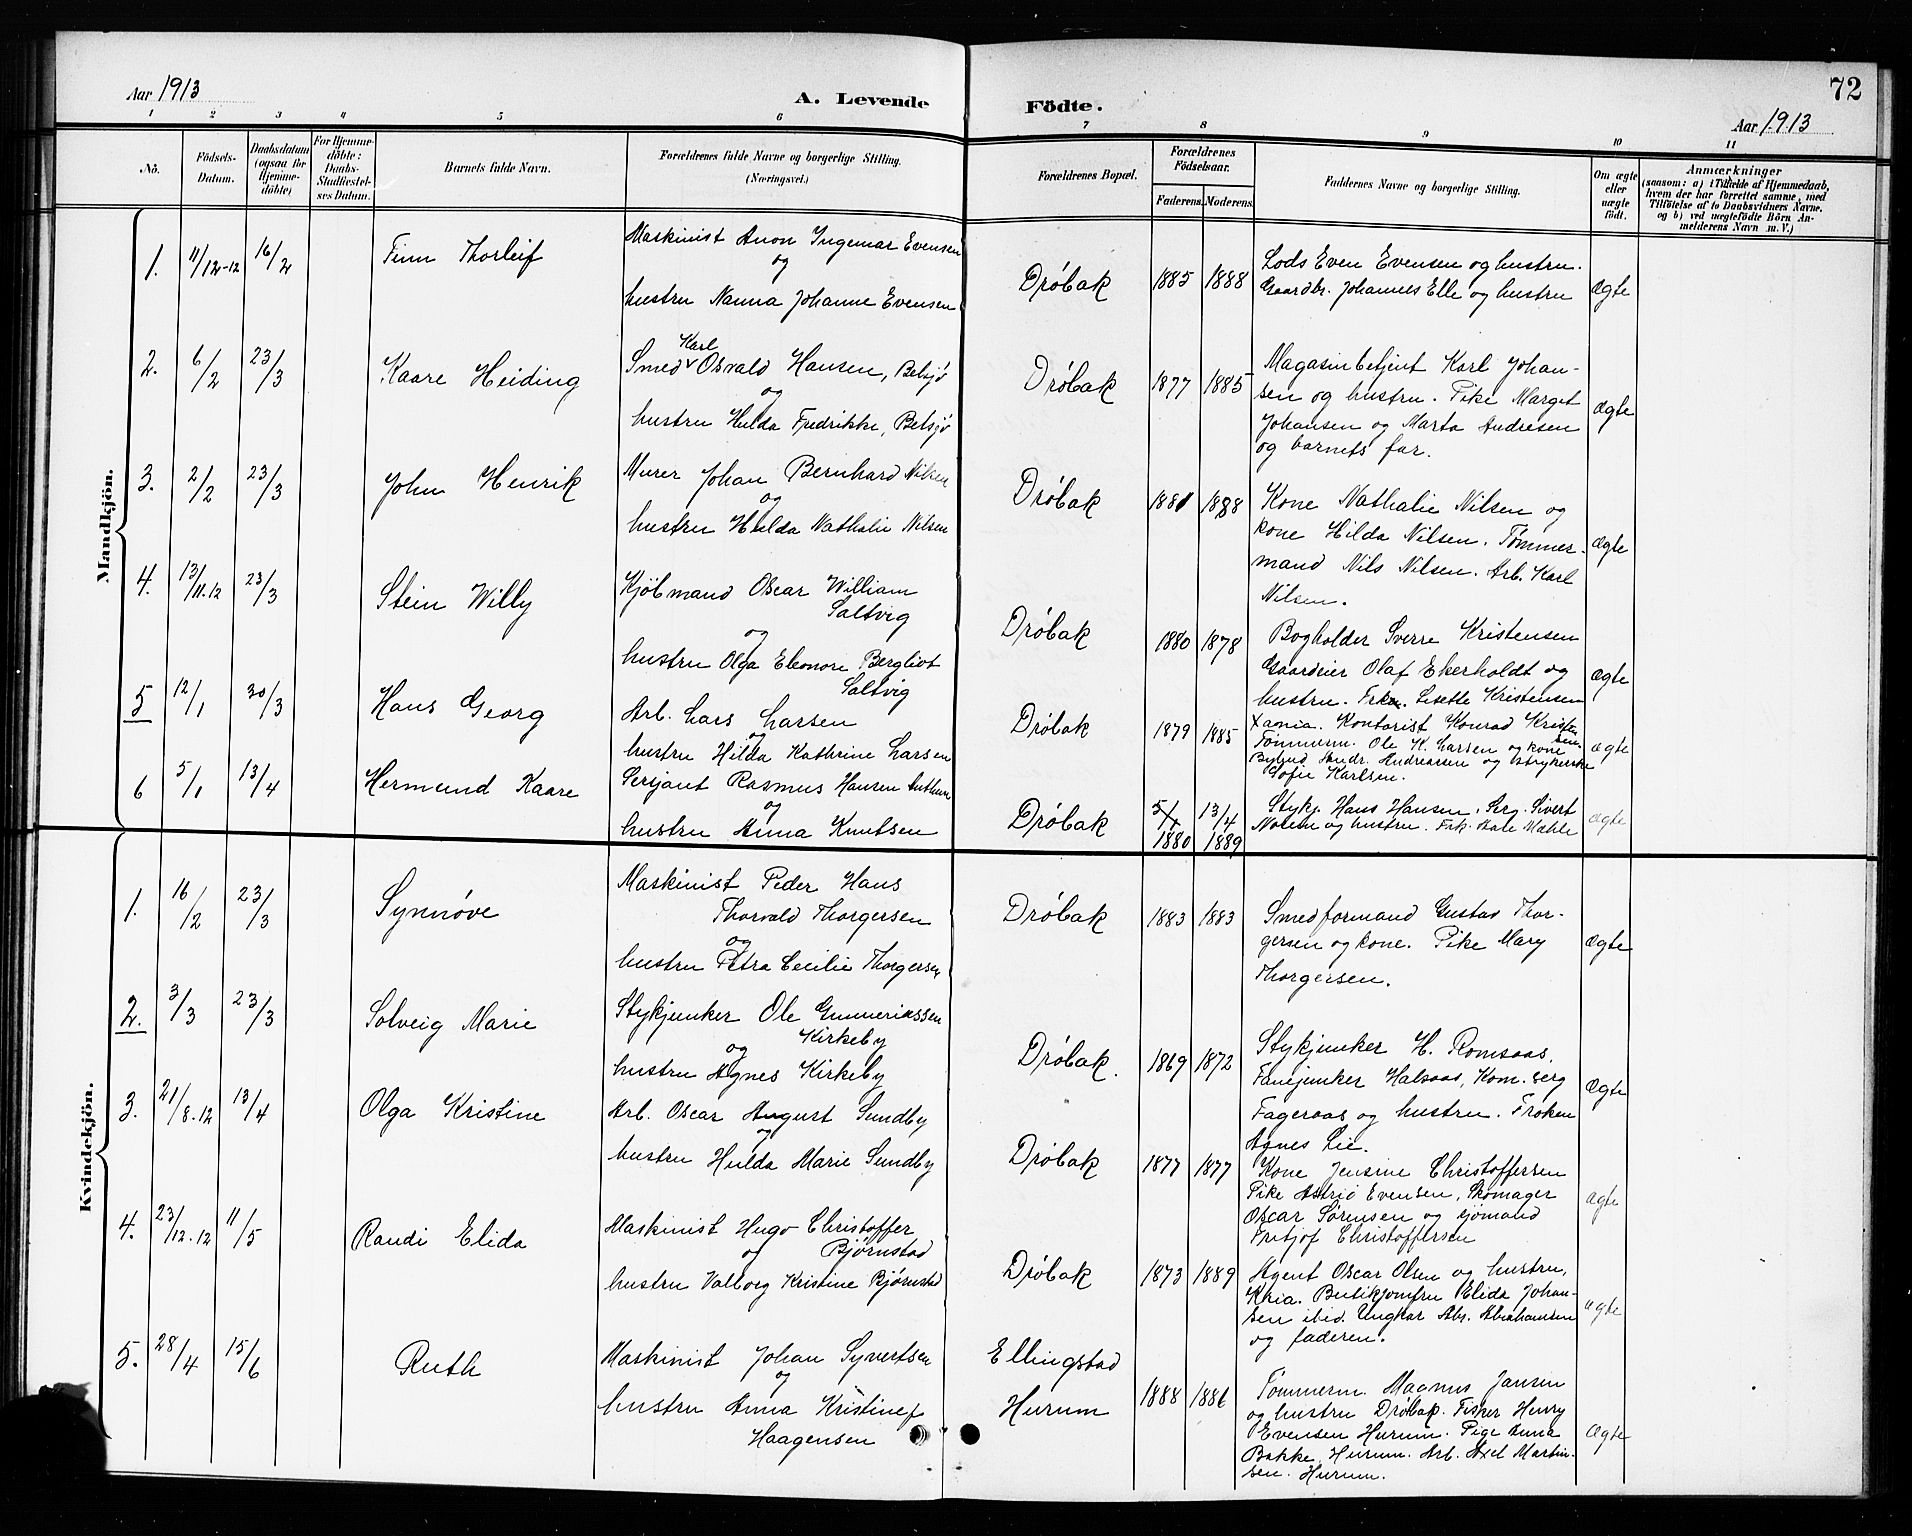 72
Aar 1913
A. Levende
Födte.
Aar 1913
1 2 3 4 5 6 7 8 9 10 11
No.
Födsels-
Datum.
Daabsdatum
(ogsaa for
Hjemme-
döbte)
For Hjemme-
döbte:
Daabs-
Stadfæstel-
ses Datum.
Barnets fulde Navn.
Forældrenes fulde Navne og borgerlige Stilling.
(Næringsvei.)
Forældrenes Bopæl.
Forældrenes
Födselsaar.
Faderens. Moderens.
Faddernes Navne og borgerlige Stilling.
Om ægte
eller
uægte
födt.
Anmærkninger
(saasom: a) i Tilfælde af Hjemmedaab,
hvem der har forrettet samme, med
Tilföielse af to Daabsvidners Navne,
og b) ved uægtefödte Börn An-
melderens Navn m. V.)
Mandkjön.
1. 11/12-12 16/2 Finn Thorleif
Maskinist Anon Ingemar Evensen
og
hustru Nanna Johanne Evensen
Drøbak 1885 1888
Lods Even Evensen og hustru.
Gaardbr. Johannes Elle og hustru
Ægte
2. 6/2 23/3 Kaare Heiding
Karl
Smed Osvald Hansen, Belsjø
og
hustru Hulda Fredrikke, Belsjø
Drøbak 1877 1885
Magasinbetjent Karl Johan-
sen og hustru. Pike Marget
Johansen og Marta Andresen
og barnets far.
Ægte
3. 2/2 23/3 John Henrik
Murer Johan Bernhard Nilsen
og
hustru Hulda Nathalie Nilsen
Drøbak 1881 1888
Kone Nathalie Nilsen og
kone Hilda Nilsen. Tømmer-
mand Nils Nilsen. Arb. Karl
Nilsen.
Ægte
4. 13/11.12 23/3 Stein Willy
Kjøbmand Oscar William
Saltvig
og
hustru Olga Eleonore Bergliot
Saltvig
Drøbak 1880 1878
Bogholder Sverre Kristensen
Gaardeier Olaf Ekerholdt og
hustru. Frkn. Lisette Kristensen
Xania. Kontorist Konrad Kristen
sen.
Ægte
5 12/1 30/3 Hans Georg
Arb. Lars Larsen
og
hustru Hilda Kathrine Larsen
Drøbak 1879 1885
Tømmerm. Ole K. Larsen og kone
Bybud Andr. Andreassen og strykerske
Sofie Karlsen.
ægte
6 5/1 13/4 Hermund Kaare
Serjant Rasmus Hansen
og
hustru Anna Knutsen
Drøbak 5/1 13/4
1880 1889
Stykj. Hans Hansen. Serg. Sivert
og hustru. Frk.
ægte
Kvindekjön.
1. 16/2 23/3 Synnøve
Maskinist Peder Hans
Thorvald Thorgersen
og
hustru Petra Cecilie Thorgersen
Drøbak 1883 1883
Smedformand Gustav Thor-
gersen og kone. Pike Mary
Thorgersen.
Ægte
2. 3/3 23/3 Solveig Marie
Stykjunker Ole Gunneriussen
Kirkeby
og
hustru Agnes Kirkeby
Drøbak. 1869 1872
Stykjunker H. Romsaas.
Fanejunker Halsaas, Kom. serg
Fageraas og hustru. Frøken
Agnes Lie.
Ægte
3. 21/8.12 13/4 Olga Kristine
Arb. Oscar August Sundby
og
hustru Hulda Marie Sundby
Drøbak 1877 1877
Kone Jensine Christoffersen
Pike Astrid Evensen, Skomager
Oscar Sørensen og sjømand
Fritjof Christoffersen
ægte
4. 23/12.12 11/5 Randi Elida
Maskinist Hugo Christoffer
og Bjørnstad
hustru Valborg Kristine Bjørnstad
Drøbak 1873 1889
Agent Oscar Olsen og hustru,
Kria. Butikjomfru Elida Johan-
sen ibid. Ungkar Abr. Abrahamsen
og faderen.
ægte
5. 28/4 15/6 Ruth
Maskinist Johan Syvertsen
og
hustru Anna Kristine f
Haagensen
Ellingstad
Hurum
1888 1886
Tømmerm. Magnus Jansen
og hustru Drøbak. Fisker Henry
Evensen Hurum. Pige Anna
Bakke, Hurum. Arb. Axel Martin-
sen. Hurum.
Ægte